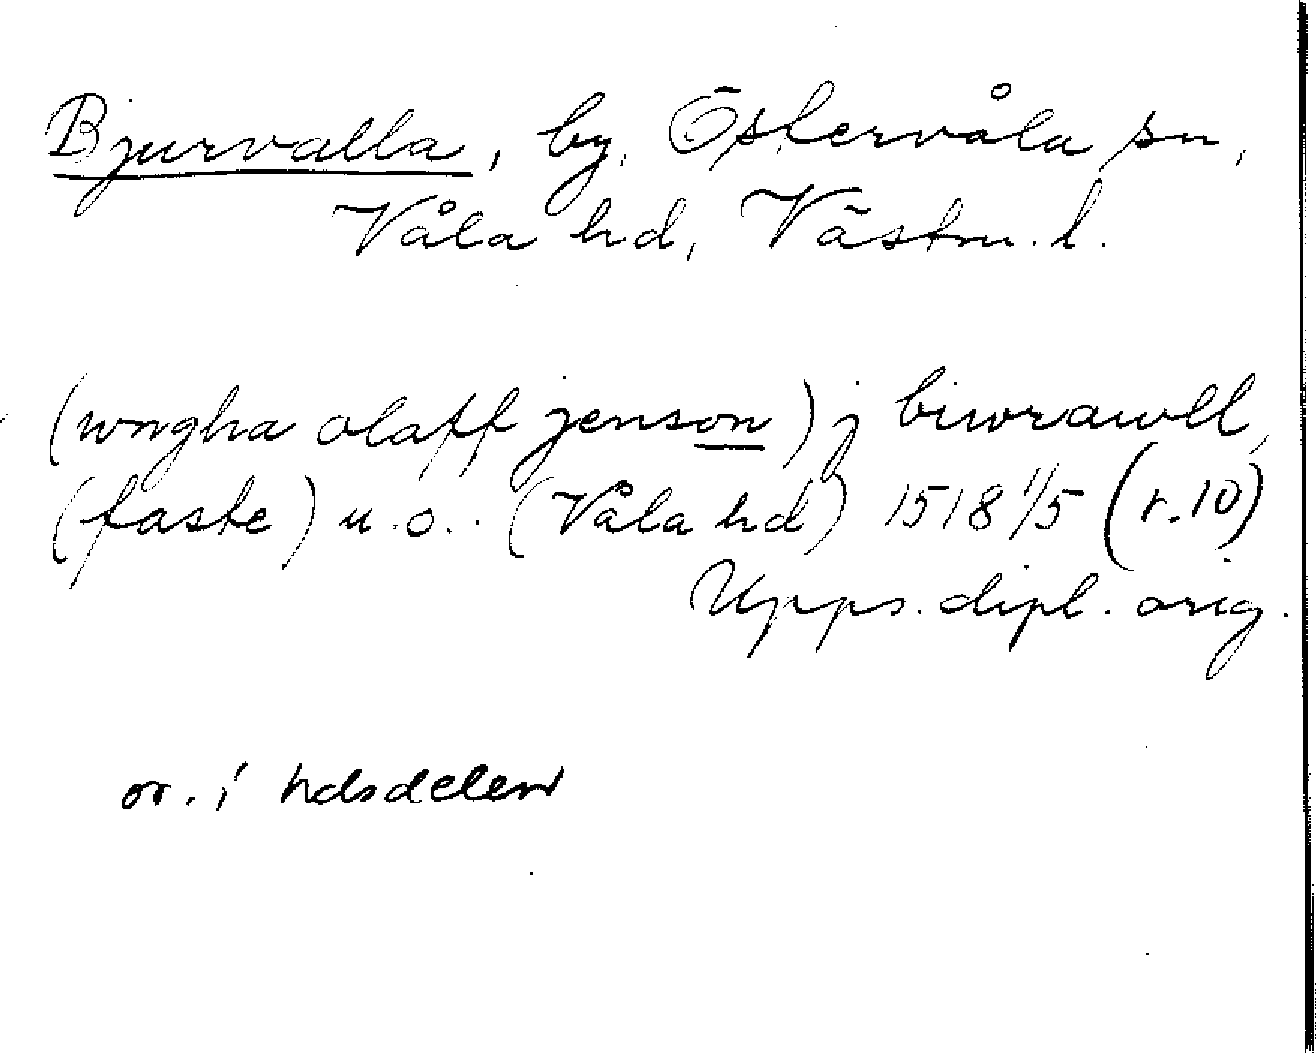 Bjurvalla, by, Östervåla sn,
Våla hd, Västm. l.
(wngha olaff jenson) j biwrawll,
(faste) u.o.. (Våla hd) 1518 1/5 (r.10)
Upps. dipl. orig.
or. i hdsdelen